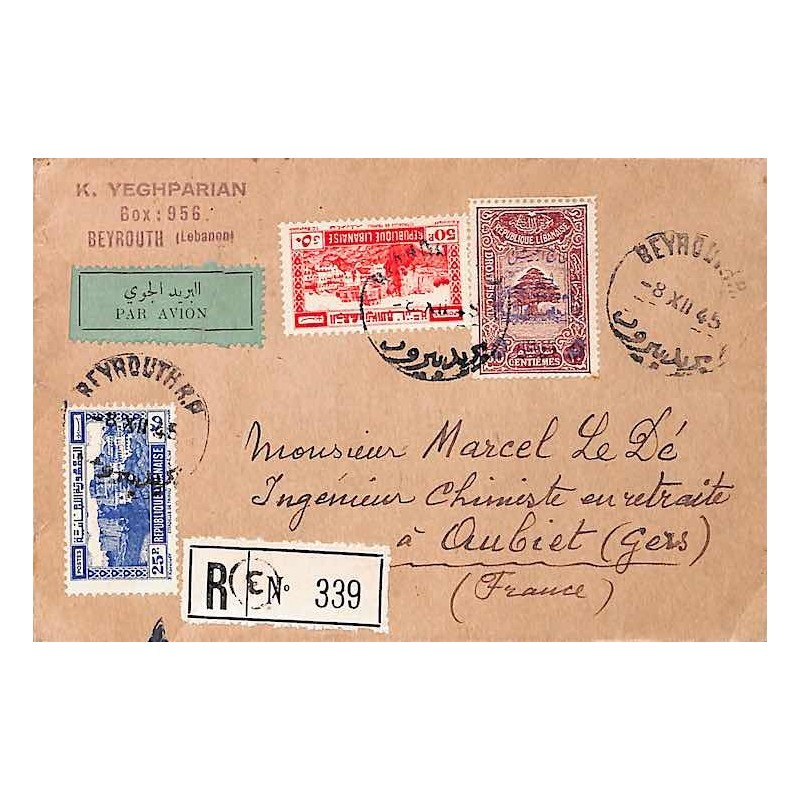 K. YEGHPARIAN
Box: 956
BEYROUTH (Lebanon)
البريد الجوي
PAR AVION
50P.
REPUBLIQUE LIBANAISE
٥٠
REPUBLIQUE LIBANAISE
CENTIÈMES
BEYROUTH R.P.
-8 XII 45
بريد بيروت
BEYROUTH R.P
-8 XII 45
POSTES
25P.
REPUBLIQUE LIBANAISE
Monsieur Marcel Le Dé
Ingénieur Chimiste en retraite
à Aubiet (Gers)
(France)
R Nº 339